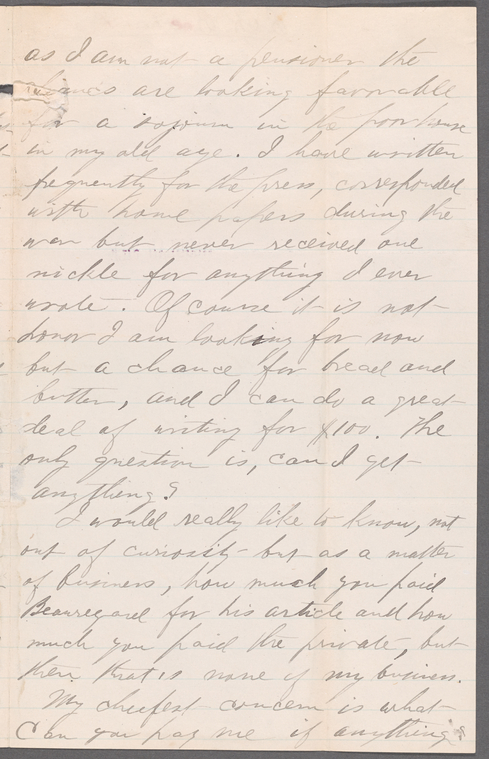 as I am not a pensioner the
chances are looking favorable
for a sojourn in the poor house
in my old age. I have written
frequently for the press, corresponded
with home papers during the
war but never received one
nickle for anything I ever
wrote. Of course it is not
honor I am looking for now
but a chance for bread and
butter, and I can do a great
deal of writing for $100. The
only question is, can I get
anything?
I would really like to know, not
out of curiosity but as a matter
of business, how much you paid
Beauregard for his article and how
much you paid the private, but
then that is none of my business.
My cheefest concern is what
can you pay me if anything?